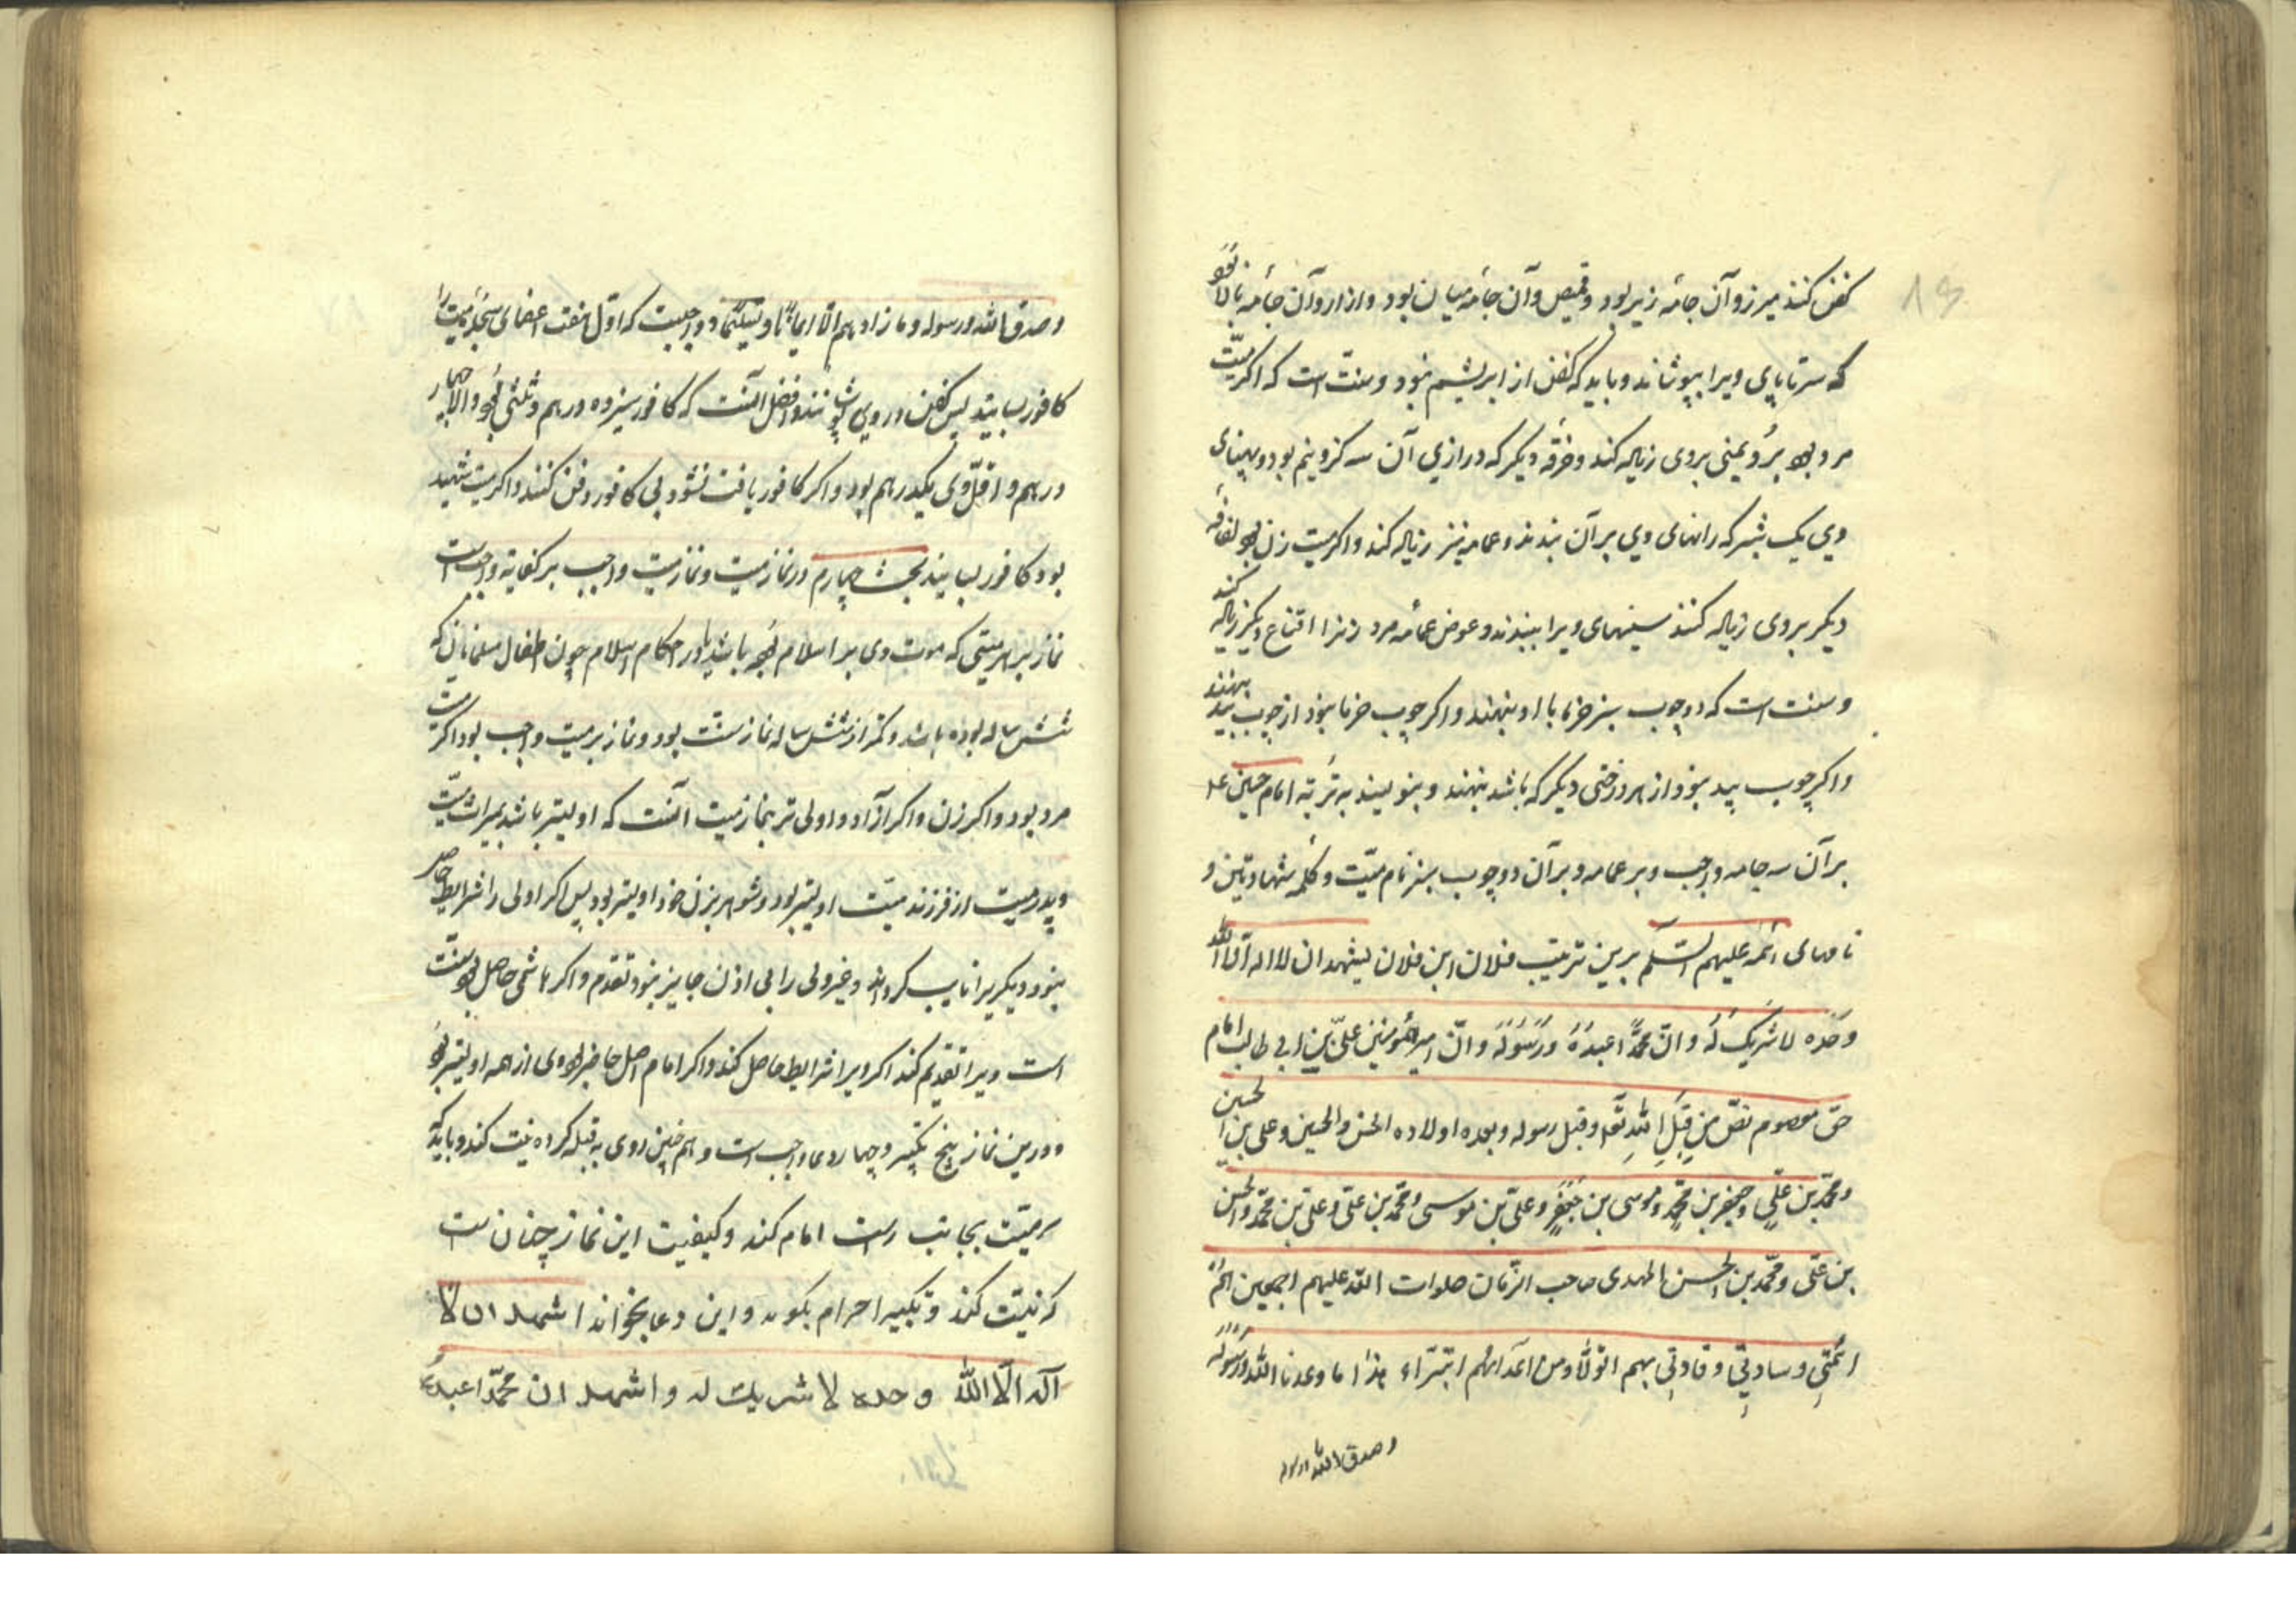 کفن کنند میرز و آن جامه زیر بود و قمیص و آن جامه میان بود و ازار و آن جامه بالا بود
که سر تا پای ویرا بپوشاند و باید که کفن از ابریشم نبود و سنت است که اکر میّت
مرد بود بُرد یمنی بروی زیاله کند و خرقه دیکر که درازی آن سه کز و نیم بود و پهنای
وی یک شبر که رانهای وی بر آن بندند و عمامه نیز زیاله کند و اکر میت زن بود لفافه
دیکر بروی زیاله کنند سینهای ویرا ببندند و عوض عمامه مرد زنرا اقناع دیکر زیاله کند
و سنت است که دو چوب سبز خرما با او بنهند و اکر چوب خرما نبود از چوب بید بنهند
و اکر چوب بید نبود از هر درختی دیکر که باشد بنهند و بنویسند به تربه امام حسین ع
بر آن سه جامه واجب و بر عمامه و بر آن دو چوب سبز نام میّت و کلمه شهادتین و
نامهای ائمه علیهم السّلم برین ترتیب فلان ابن فلان یشهد ان لا اله الّا اللّه
وحده لا شریک له و انّ محمّدًا عبدُهُ وَرَسُولُه و انّ امیر المؤمنین علیّ بن ابی طالب امام
حقّ معصوم نصّ من قِبَلِ اللّهِ تعَ و قبل رسوله و بعده اولاده الحسن و الحسین و علی بن الحسین
و محمّد بن علیٍ و جعفر بن محمّدٍ و موسی بن جَعْفَرٍ و علیّ بن موسی و محمّد بن علیّ و علیّ بن محمّد و الحسن
بن علیّ و محمّد بن الحسن المهدی صاحب الزّمان صلوات اللّه علیهم اجمعین انّهم
ائمّتِی و سادتِی و قادتِی بهم اتولّا و من اعدائهم اتبّراء هذا ما وعدنا اللّه و رسوله
و صدق اللّه و رسوله
و صدق اللّه و رسوله و ما زادهم الّا ایمانًا و تسلیمًا و واجبست که اوّل هفت اعضای سجده میت را
کافور بسایند پس کفن در وی پوشانند و افضل آنست که کافور سیزده درهم و ثلثی بود و الا چهار
درهم و اقلّ وی یکدرهم بود و اکر کافور یافت نشود بی کافور دفن کنند و اکر میت شهید
بود کافور بسایند بحث چهارم در نماز میت و نماز میت واجب بر کفایة و واجبست
نماز بر هر میتی که موت وی بر اسلام بود باشد یا در احکام اسلام چون اطفال مسلمانان که
شش ساله بوده باشد و کمتر از شش ساله نماز سنّت بود و نماز بر میت واجب بود اکر میت
مرد بود و اکر زن و اکر آزاد و اولی تر بنماز میت آنست که اولیتر باشد بمیراث میّت
و پدر میت از فرزند میّت اولیتر بود و شوهر بزن خود اولیتر بود پس اکر اولی را شرایط حاصل
نبود دیکریرا نایب کرداند و غیر ولی را بی اذن جایز نبود تقدم و اکر هاشمی حاصل بود سنّت
است ویرا تقدیم کند اکر ویرا شرایط حاصل کند و اکر امام اصل حاضر بود وی از همه اولیتر بود
و درین نماز پنج تکبیر و چهار دعا واجب است و هم چنین روی به قبله کرده نیت کند و باید که
سر میّت بجانب راست امام کند و کیفیت این نماز چنان ست
که نیّت کند و تکبیر احرام بکوید و این دعا بخواند اشهد ان لا
اله الّا اللّه وحده لا شریک له و اشهد ان محمّدا عبده